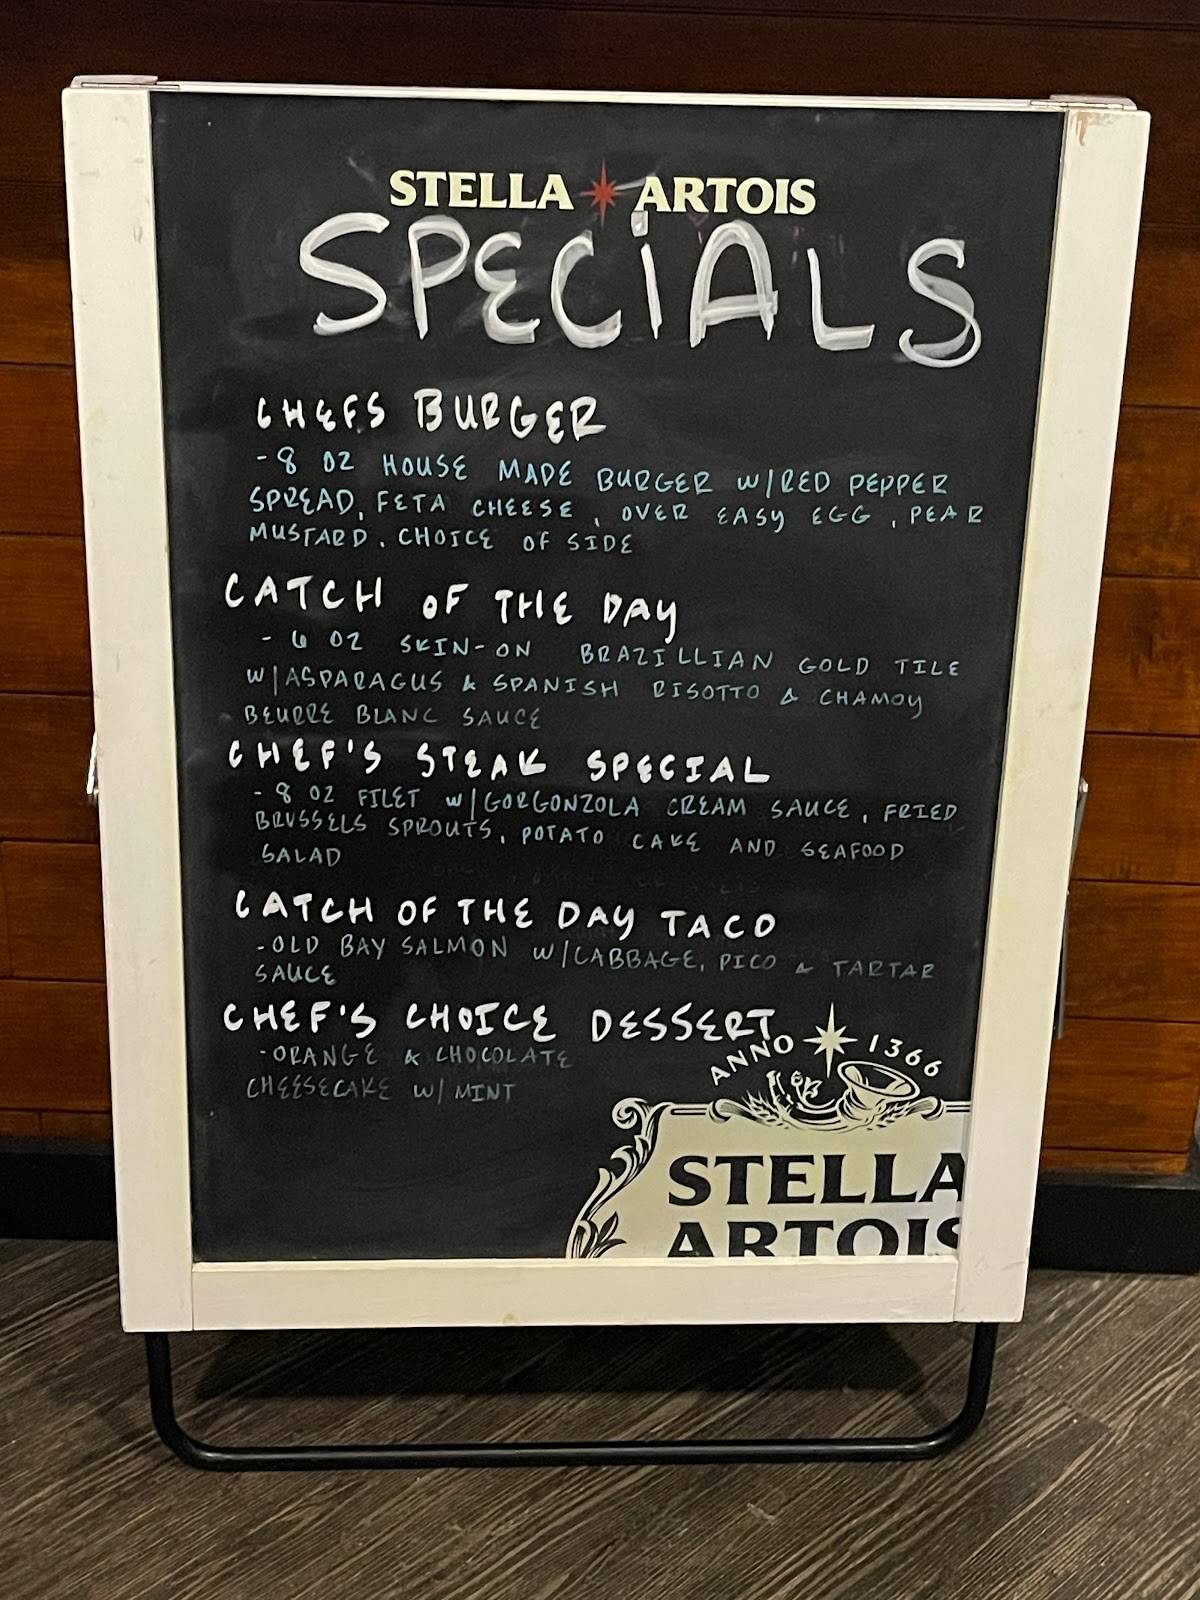 STELLA ARTOIS
SPECiALS
CHEFS BURGER
-8 OZ HOUSE MADE BURGER W/RED PEPPER
SPREAD, FETA CHEESE, OVER EASY EGG, PEAR
MUSTARD. CHOICE OF SIDE
CATCH OF THE DAY
- 6 OZ SKIN-ON BRAZILLIAN GOLD TILE
W/ASPARAGUS & SPANISH RISOTTO & CHAMOY
BEURRE BLANC SAUCE
CHEF'S STEAK SPECIAL
- 8 OZ FILET W/GORGONZOLA CREAM SAUCE, FRIED
BRUSSELS SPROUTS, POTATO CAKE AND SEAFOOD
SALAD
CATCH OF THE DAY TACO
-OLD BAY SALMON W/CABBAGE, PICO & TARTAR
SAUCE
CHEF'S CHOICE DESSERT
-ORANGE & CHOCOLATE
CHEESECAKE W/ MINT
ANNO 1366
STELLA
ARTOIS